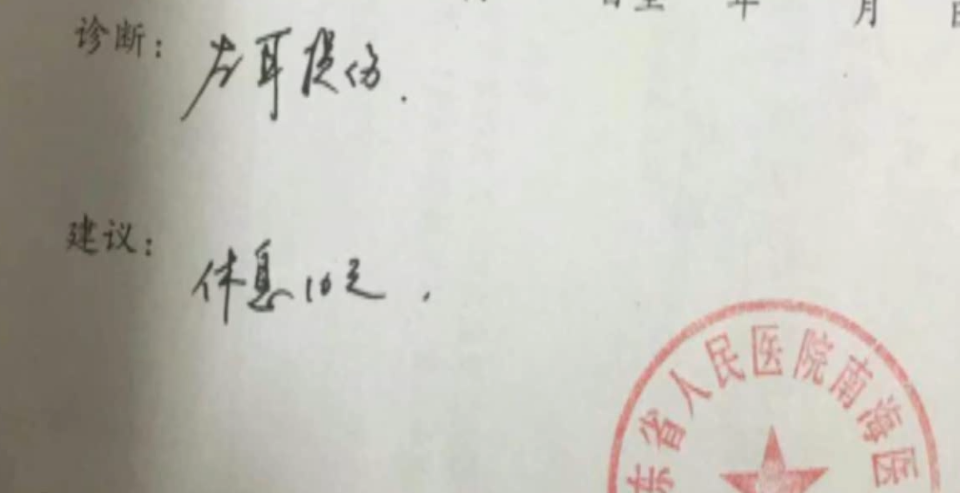 年 月
诊断：左耳损伤.
建议：休息10天.
东省人民医院南海医